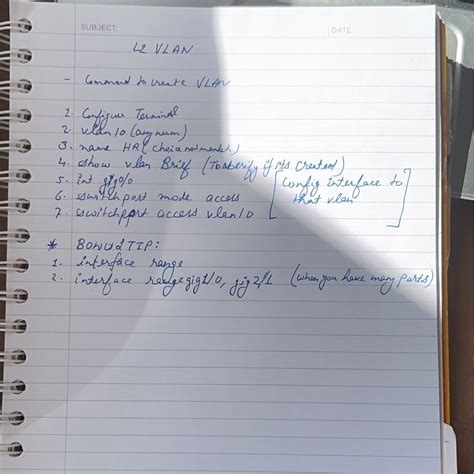 SUBJECT: DATE
L2 VLAN
- Command to create VLAN
1. Configure Terminal
2. vlan 10 (any num)
3. name HR (choice not mandt)
4. show vlan Brief (To verify if it's created)
5. int gig 0/0 [Config interface to
6. switchport mode access that vlan]
7. switchport access vlan 10
* BONUS TIP:
1. interface range
2. interface range gig1/0, gig2/1 (when you have many ports)